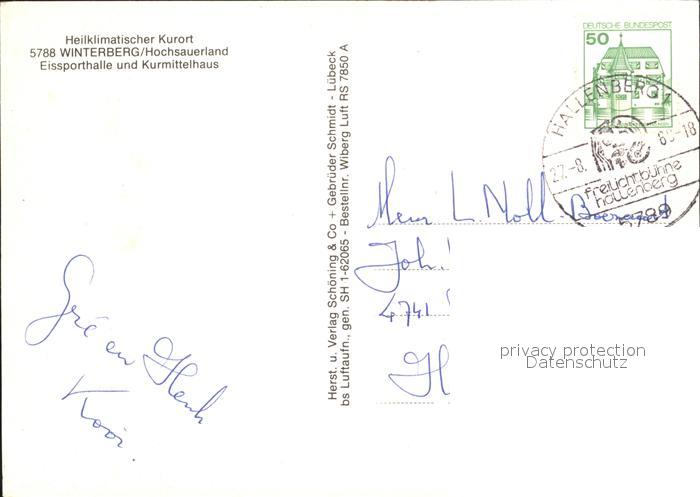 Heilklimatischer Kurort
5788 WINTERBERG/Hochsauerland
Eissporthalle und Kurmittelhaus
Herst. u. Verlag Schöning & Co + Gebrüder Schmidt - Lübeck
bs Luftaufn., gen. SH 1-62065 - Bestellnr. Wiberg Luft RS 7850 A
DEUTSCHE BUNDESPOST
50
HALLENBERG 1
27.-8. 8 -18
freilichtbühne
hallenberg
5789
L. Noll-
Joh.
4741
H
privacy protection
Datenschutz
en Henk